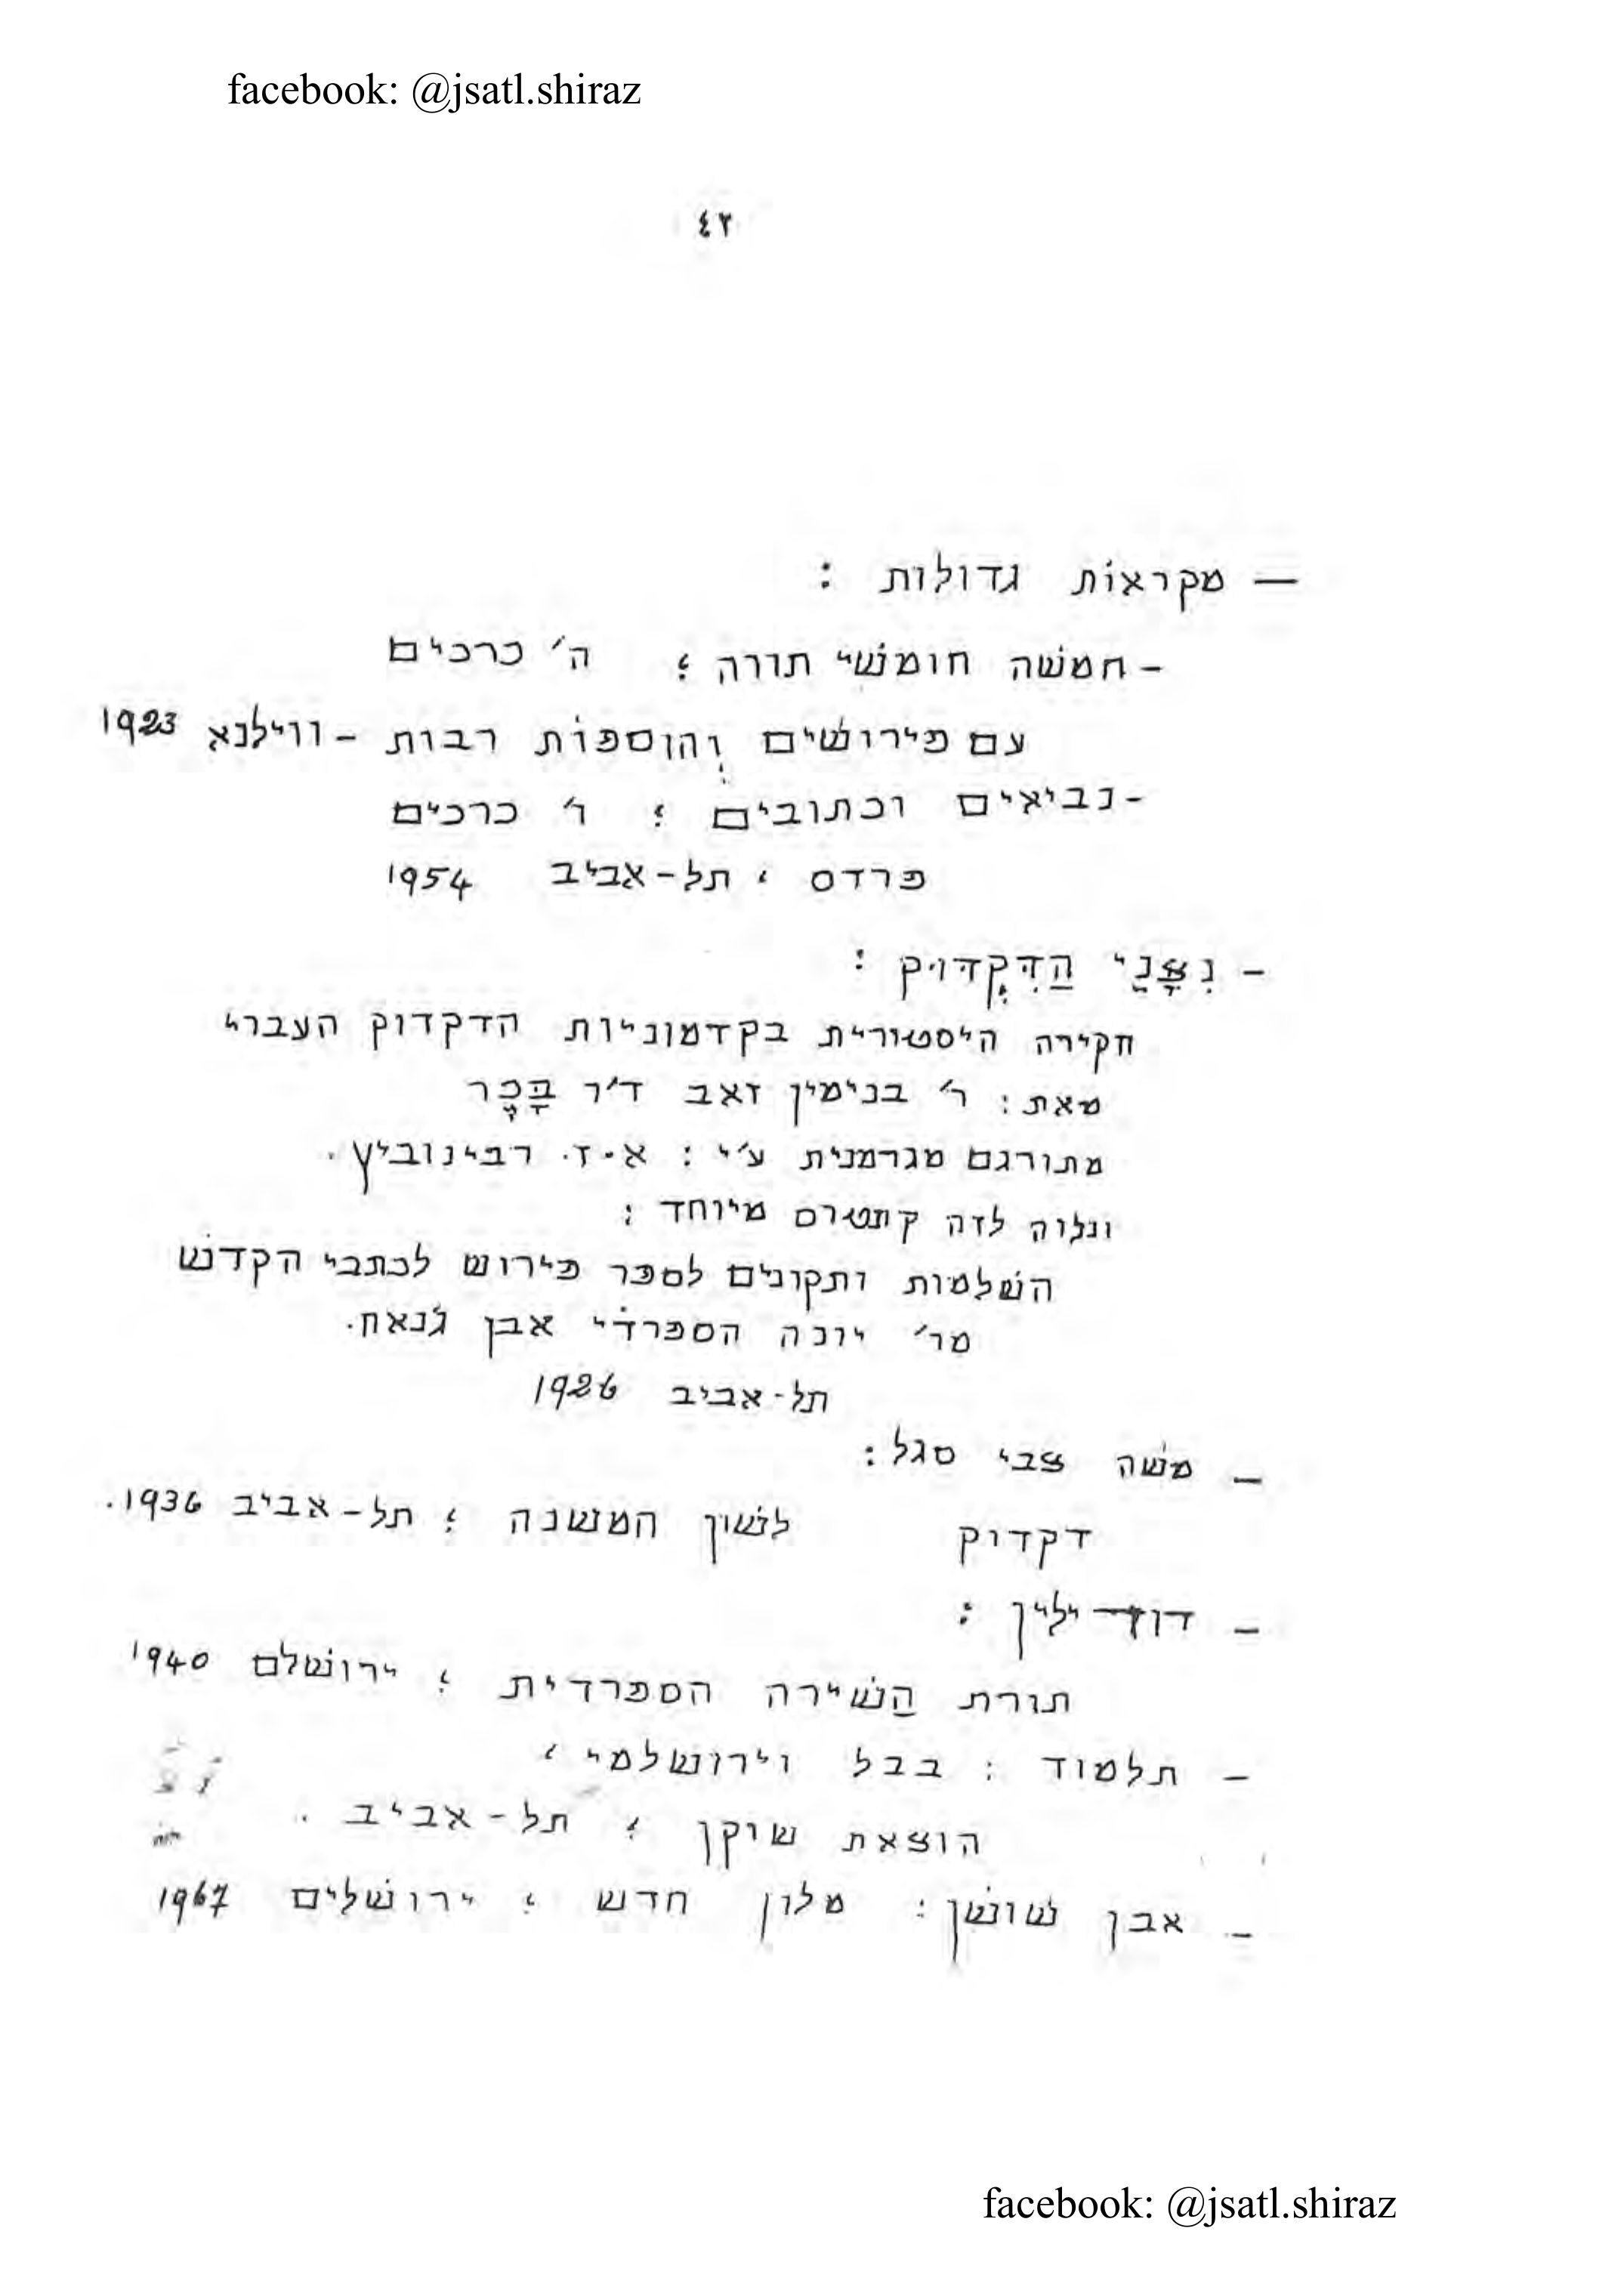 facebook: @jsatl.shiraz
٤٢
— מקראות גדולות :
- חמשה חומשי תורה ؛ ה׳ כרכים
עם פירושים והוספות רבות - ווילנא 1923
- נביאים וכתובים ؛ ו׳ כרכים
פרדס ، תל-אביב 1954
- נִצָּנֵי הַדִּקְדּוּק :
חקירה היסטורית בקדמוניות הדקדוק העברי
מאת : ר׳ בנימין זאב ד׳ר בָּכֶר
מתורגם מגרמנית ע׳י : א.ז. רבינוביץ.
ונלוה לזה קתטרס מיוחד :
השלמות ותקונים לספר פירוש לכתבי הקדש
מר׳ יונה הספרדי אבן ג׳נאח.
תל-אביב 1926
- משה צבי סגל :
דקדוק לשון המשנה ؛ תל-אביב 1936.
- דוד ילין :
תורת הַשירה הספרדית ؛ ירושלם 1940
- תלמוד : בבל וירושלמי ،
הוצאת שוקן ؛ תל-אביב .
- אבן שושן : מלון חדש ؛ ירושלים 1967
facebook: @jsatl.shiraz